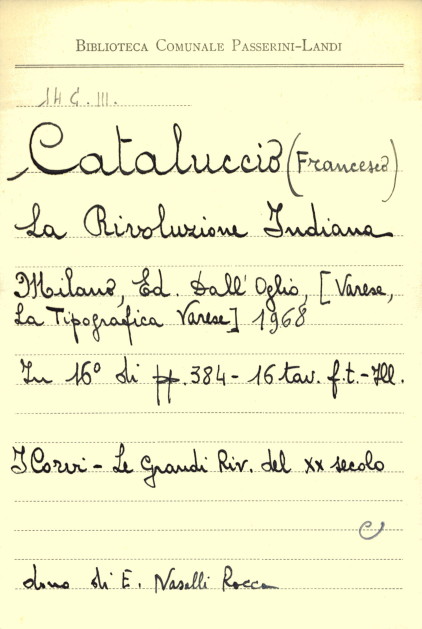 BIBLIOTECA COMUNALE PASSERINI-LANDI
14 G. III.
Cataluccio (Francesco)
La Rivoluzione Indiana
Milano, Ed. Dall'Oglio, [Varese,
La Tipografica Varese] 1968
In 16° di pp. 384 - 16 tav. f.t. - Ill.
I Corvi - Le Grandi Riv. del XX secolo
dono di E. Naselli Rocca